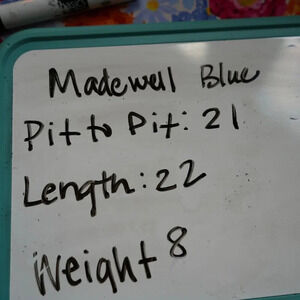 Madewell Blue
Pit to Pit: 21
Length: 22
Weight 8